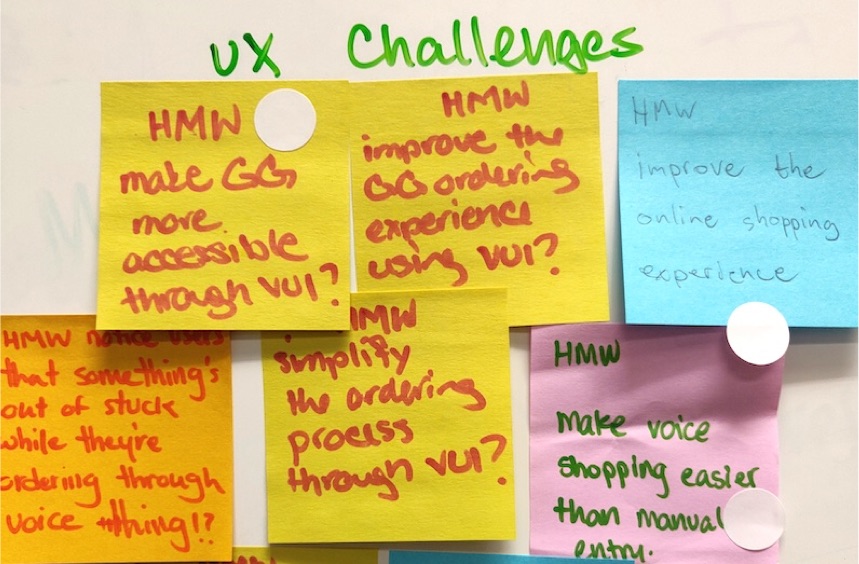 UX Challenges
HMW
make GG
more
accessible
through VUI?
HMW
improve the
GG ordering
experience
using VUI?
HMW
improve the
online shopping
experience
HMW notice users
that something's
out of stuck
while they're
ordering through
voice thing!?
HMW
simplify
the ordering
process
through VUI?
HMW
Make voice
shopping easier
than manual
entry.